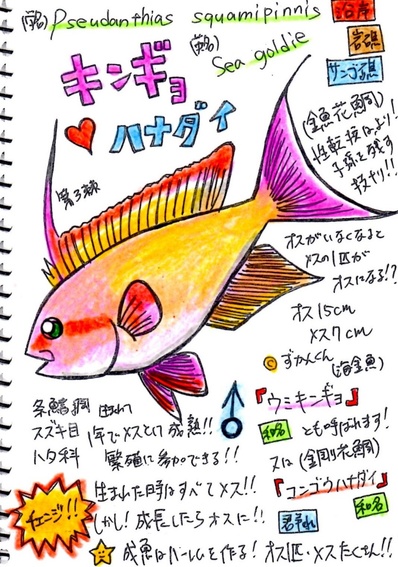 (学名) Pseudanthias squamipinnis
(英名) Sea goldie
沿岸
岩礁
サンゴ礁
キンギョ
ハナダイ
(金魚花鯛)
性転換は、より
子孫を残す
技だ!!
第3棘
オスがいなくなると
メスの1匹が
オスになる!?
オス15cm
メス7cm
©ずかんくん
(海金魚)
『ウミキンギョ』
和名 とも呼ばれます!
又は(金剛花鯛)
『コンゴウハナダイ』
和名
群れ
条鰭綱
スズキ目
ハタ科
産まれて
1年でメスとして成熟!!
繁殖に参加できる!!
♂
チェンジ!!
生まれた時はすべてメス!!
しかし!成長したらオスに!!
成魚はハーレムを作る! オス1匹・メスたくさん!!